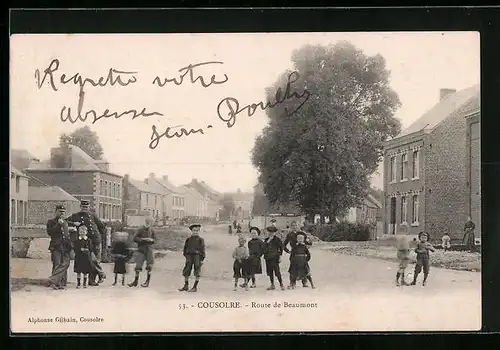 Regrette votre
absence
Jean.
53. - COUSOLRE. - Route de Beaumont
Alphonse Gilbain, Cousolre